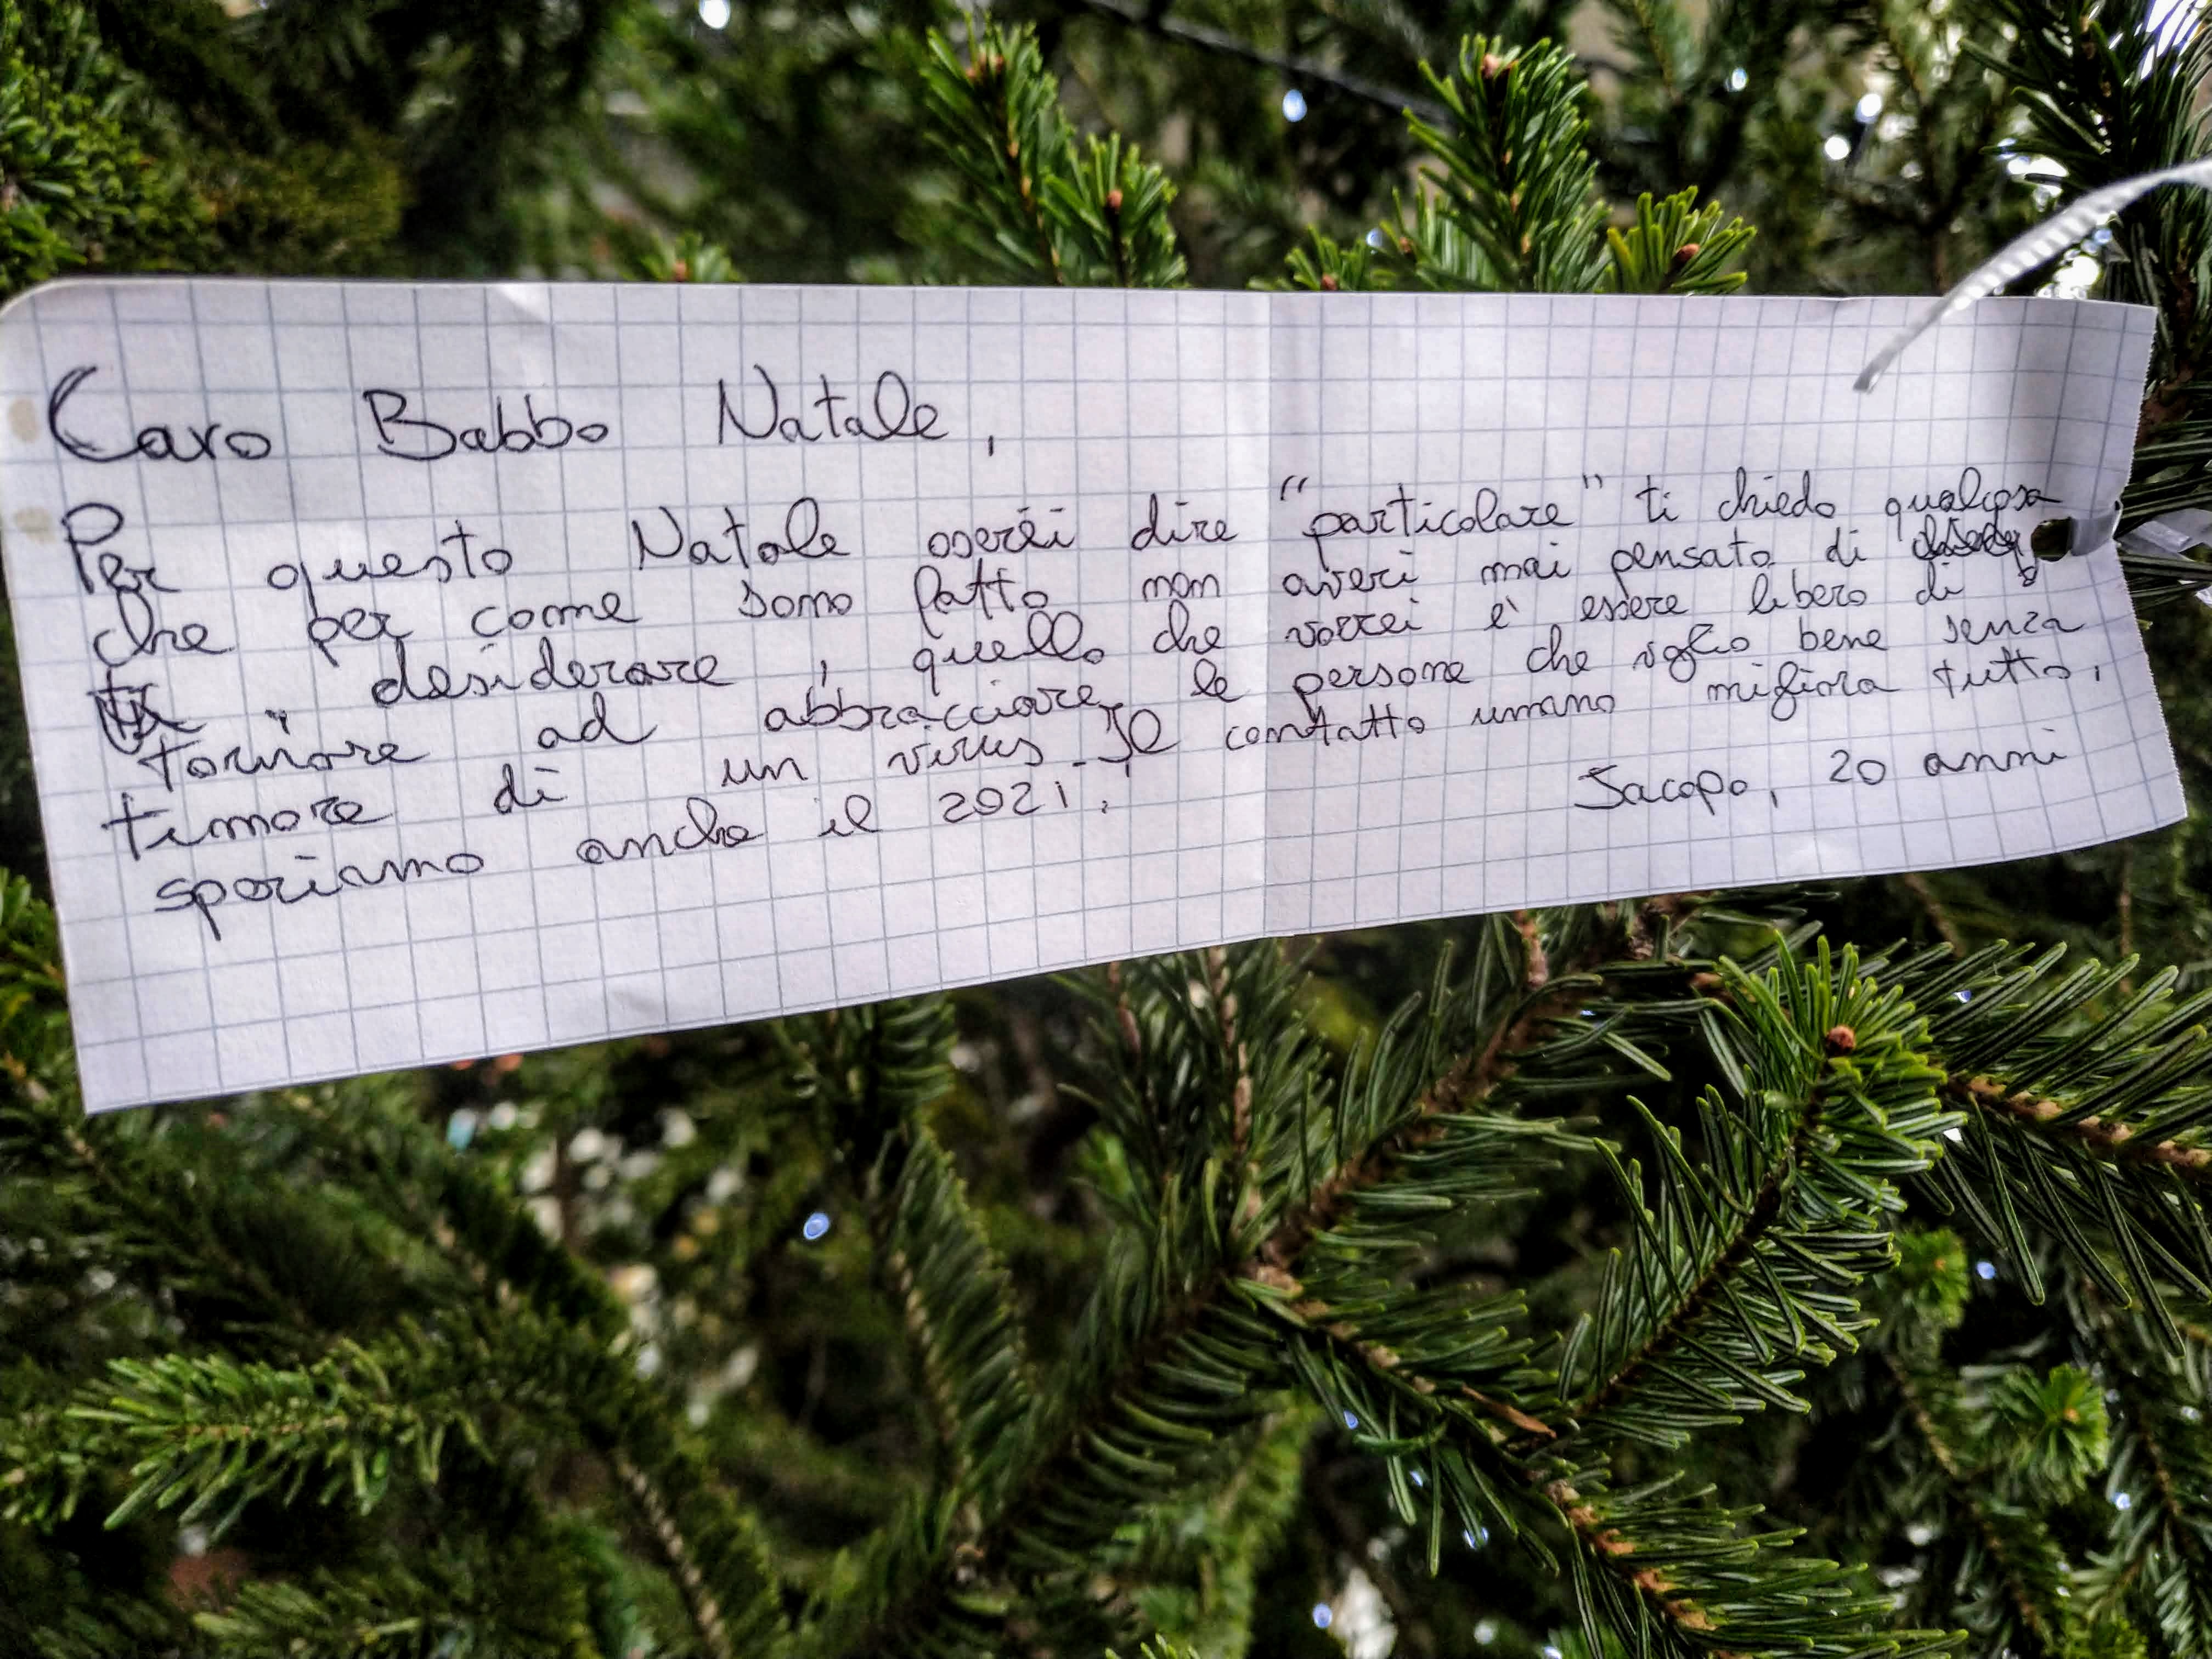 Caro Babbo Natale,
Per questo Natale oserei dire "particolare" ti chiedo qualcosa
che per come sono fatto non averi mai pensato di
desiderare, quello che vorrei è essere libero di
tornare ad abbracciare le persone che voglio bene senza
timore di un virus. Il contatto umano migliora tutto,
speriamo anche il 2021.
Jacopo, 20 anni